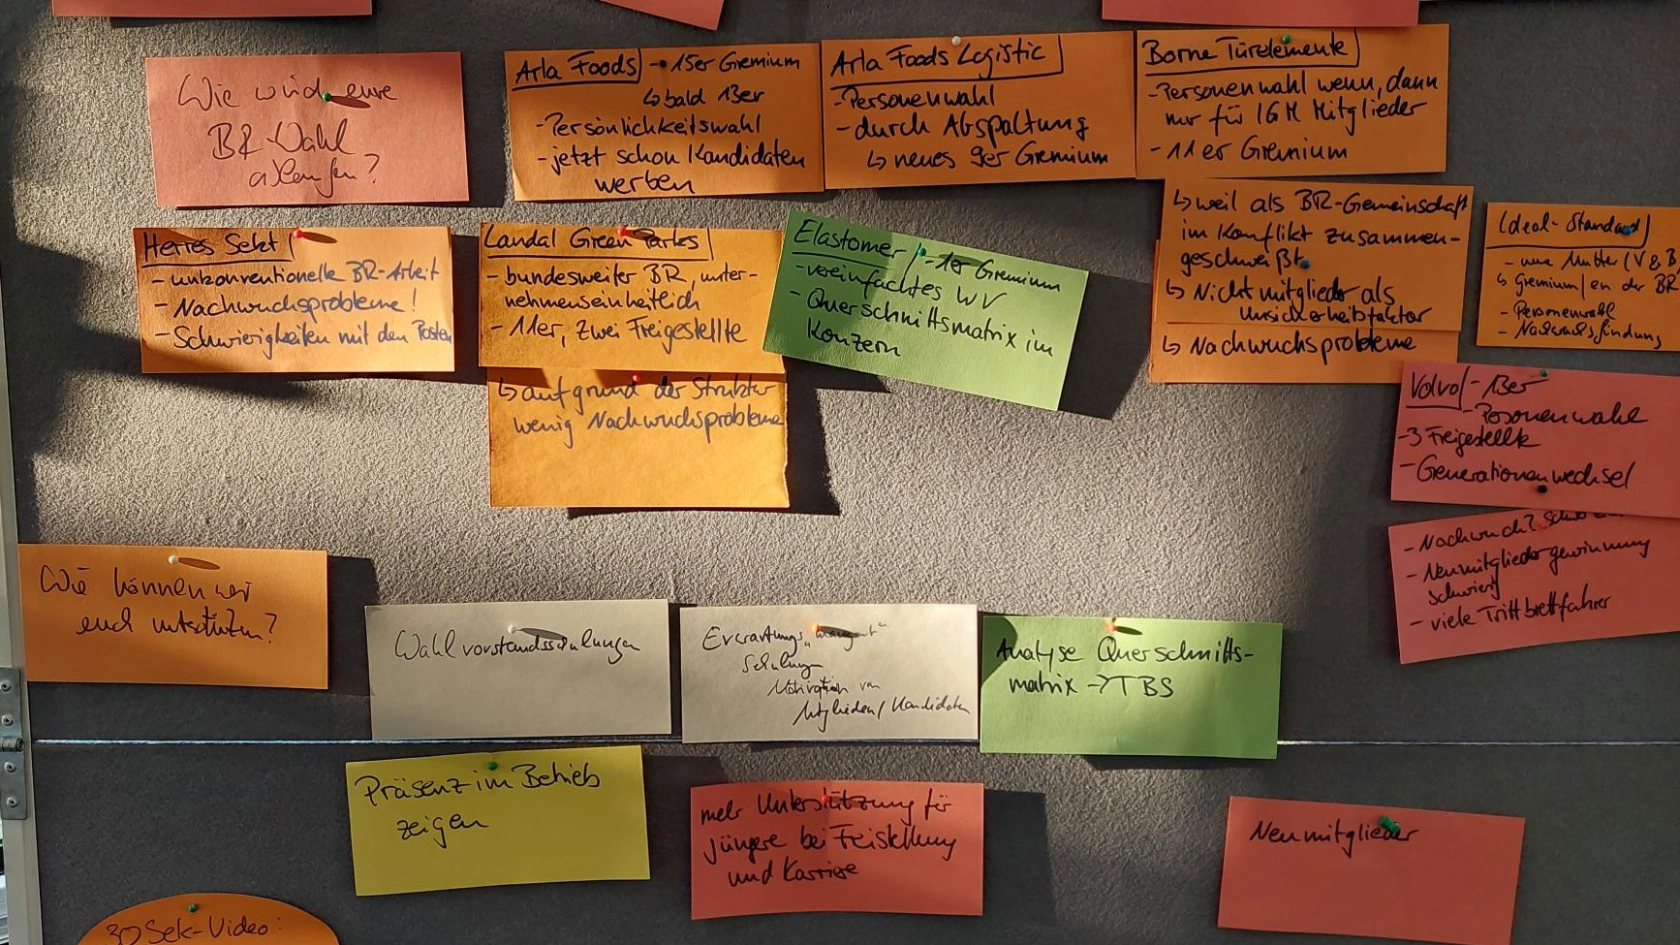 Wie wird eure
BR-Wahl
ablaufen?
Arla Foods → 15er Gremium
↳ bald 13er
- Persönlichkeitswahl
- jetzt schon Kandidaten
werben
Arla Foods Logistic
- Personenwahl
- durch Abspaltung
↳ neues 9er Gremium
Borne Türelemente
- Personenwahl wenn, dann
nur für IGM Mitglieder
- 11er Gremium
↳ weil als BR-Gemeinschaft
im Konflikt zusammen-
geschweißt
↳ Nichtmitglieder als
Unsicherheitsfaktor
↳ Nachwuchsprobleme
Herres Sekt
- unkonventionelle BR-Arbeit
- Nachwuchsprobleme!
- Schwierigkeiten mit den Posten
Landal Green Parks
- bundesweiter BR, unter-
nehmenseinheitlich
- 11er, zwei Freigestellte
↳ aufgrund der Struktur
wenig Nachwuchsprobleme
Elastomer - 1er Gremium
- vereinfachtes WV
- Querschnittsmatrix im
Konzern
Ideal-Standard
- neue Mutter (V & B
↳ Gremium/en der BR
- Personenwahl
- Nachwuchsfindung
Volvo - 13er
- Personenwahl
- 3 Freigestellte
- Generationenwechsel
- Nachwuchs?
- Neumitgliedergewinnung
schwierig
- viele Trittbrettfahrer
Wie können wir
euch unterstützen?
Wahlvorstandsschulungen
Erwartungs„managt“
Schulung
Motivation von
Mitgliedern / Kandidaten
Analyse Querschnitts-
matrix → TBS
Präsenz im Betrieb
zeigen
mehr Unterstützung für
jüngere bei Freistellung
und Karriere
Neumitglieder
30 Sek-Video: